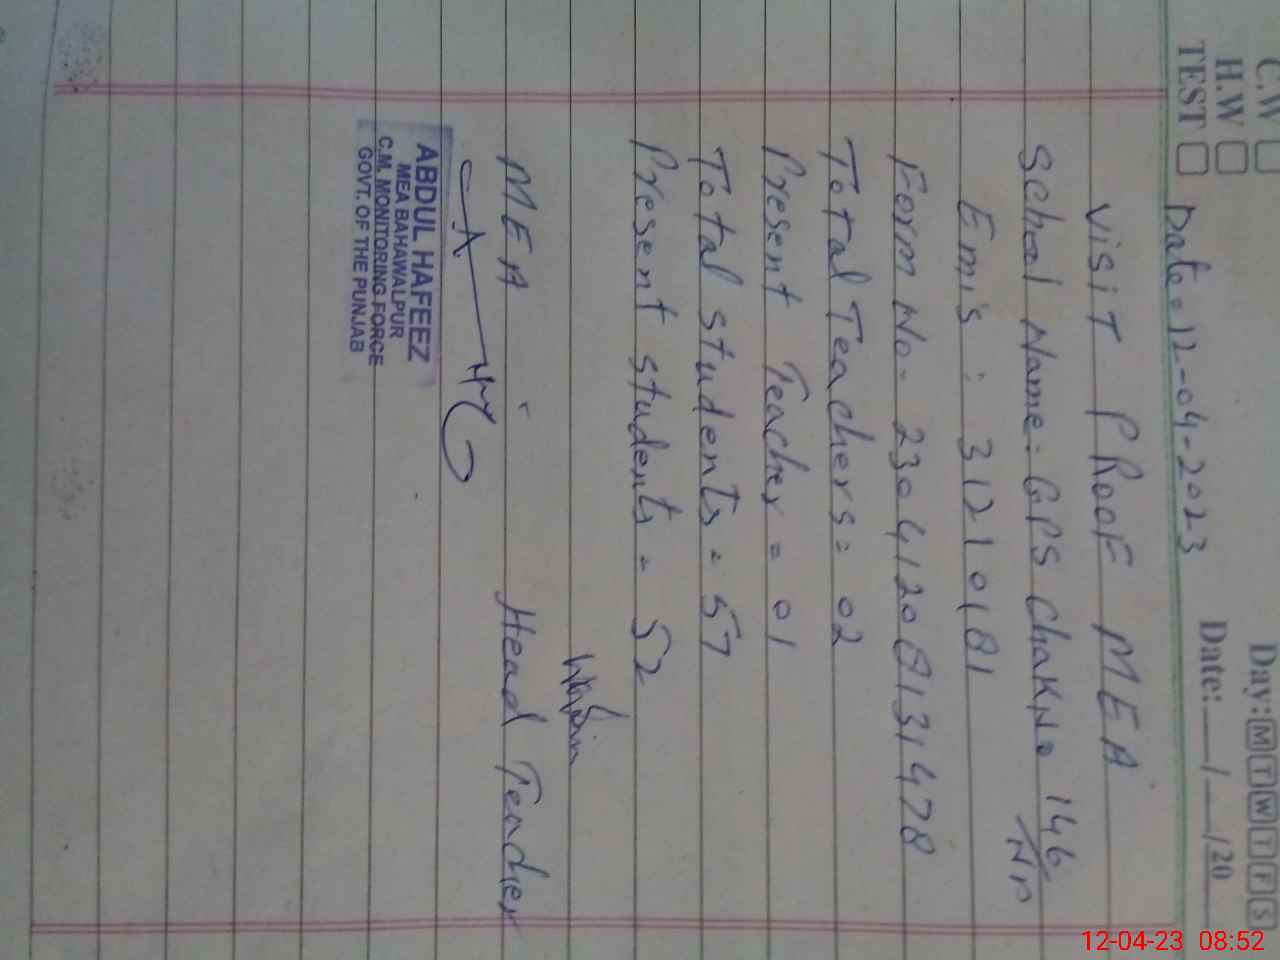 C.W
H.W
TEST
Day: M T W T F S
Date: __/__/20
Date: 12-04-2023
Visit PRooF MEA
School Name: GPS Chak No 146/NP
Emis: 31210181
Form No- 23041208131478
Total Teachers = 02
Present Teacher = 01
Total students = 57
Present students = 52
MEA
Head Teacher
ABDUL HAFEEZ
MEA BAHAWALPUR
C.M. MONITORING FORCE
GOVT. OF THE PUNJAB
12-04-23 08:52